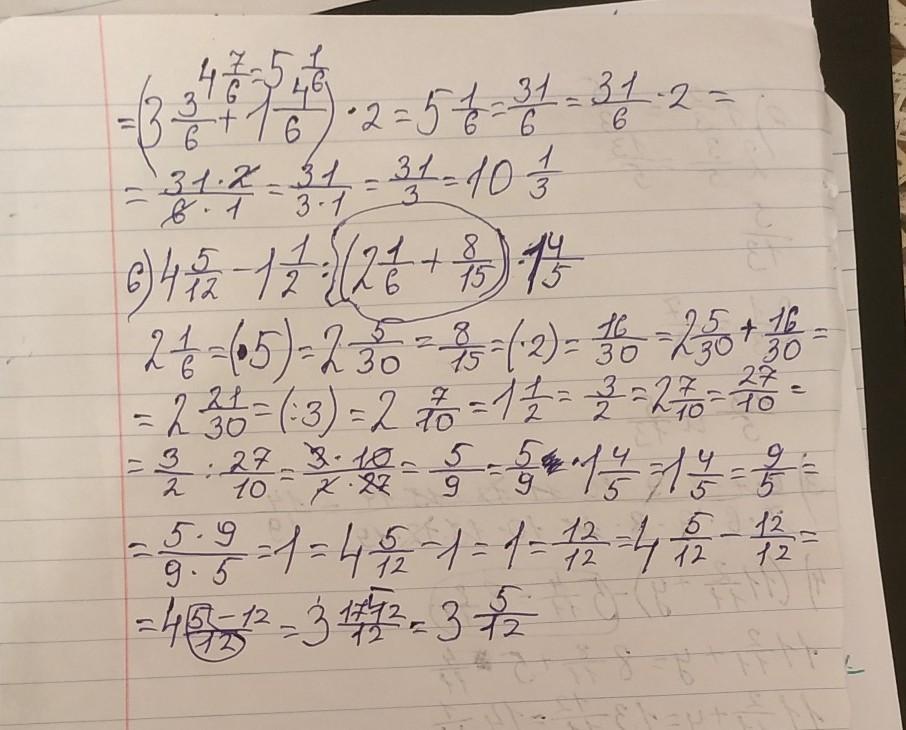 4 7/6 = 5 1/6
= (3 3/6 + 1 4/6) · 2 = 5 1/6 = 31/6 = 31/6 · 2 =
= 31 · 2/6 · 1 = 31/3 · 1 = 31/3 = 10 1/3
б) 4 5/12 - 1 1/2 : (2 1/6 + 8/15) · 1 4/5
2 1/6 = (·5) = 2 5/30 = 8/15 = (·2) = 16/30 = 2 5/30 + 16/30 =
= 2 21/30 = (:3) = 2 7/10 = 1 1/2 = 3/2 = 2 7/10 = 27/10 =
= 3/2 : 27/10 = 3 · 10/2 · 27 = 5/9 = 5/9 · 1 4/5 = 1 4/5 = 9/5 =
= 5 · 9/9 · 5 = 1 = 4 5/12 - 1 = 1 = 12/12 = 4 5/12 - 12/12 =
= 4 5 - 12/12 = 3 17-12/12 = 3 5/12